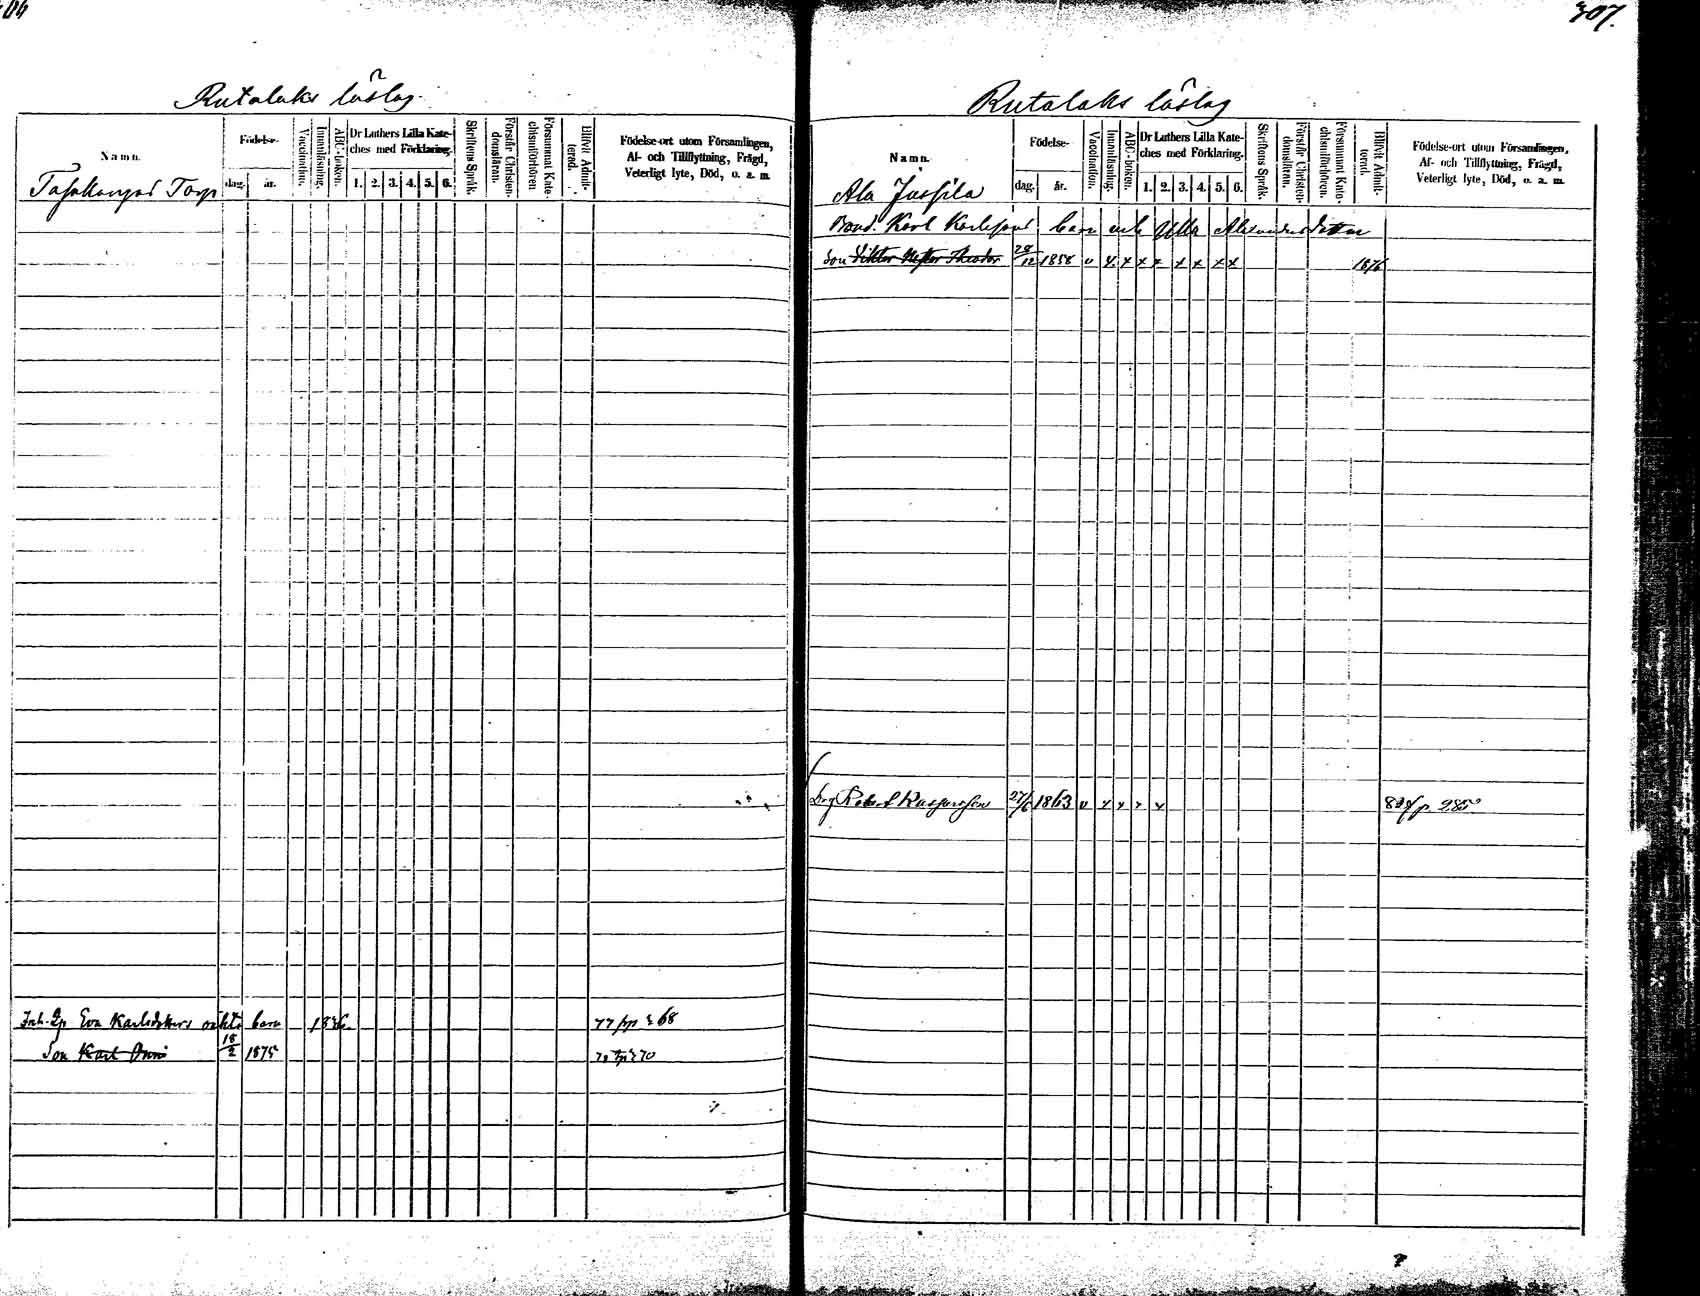 306
Rutalaks läslag.
Namn.
Födelse-
dag.
år.
Vaccination.
Innanläsning.
ABC-boken.
Dr Luthers Lilla Kate-
ches med Förklaring.
1. 2. 3. 4. 5. 6.
Skriftens Språk.
Förstår Christen-
domsläran.
Försummat Kate-
chismiförhören
Blifvit Admit-
terad.
Födelse-ort utom Församlingen,
Af- och Tillflyttning, Frägd,
Veterligt lyte, Död, o. a. m.
Torp
Inh. Eva Karlsdotters oäkta barn
Son Karl 18/2 1875
307.
Rutalaks läslag
Namn.
Födelse-
dag.
år.
Vaccination.
Innanläsning.
ABC-boken.
Dr Luthers Lilla Kate-
ches med Förklaring.
1. 2. 3. 4. 5. 6.
Skriftens Språk.
Förstår Christen-
domsläran.
Försummat Kate-
chismiförhören.
Blifvit Admit-
terad.
Födelse-ort utom Församlingen,
Af- och Tillflyttning, Frägd,
Veterligt lyte, Död, o. a. m.
Ala Jussila
Bond. Karl Karlssons barn enk Ulla Alexandersdotter
Son Viktor Nestor Theodor 28/12 1858 v x x x x x x x x 1876
Drg Robert Kaspersson 27/6 1863 v x x x x p. 285